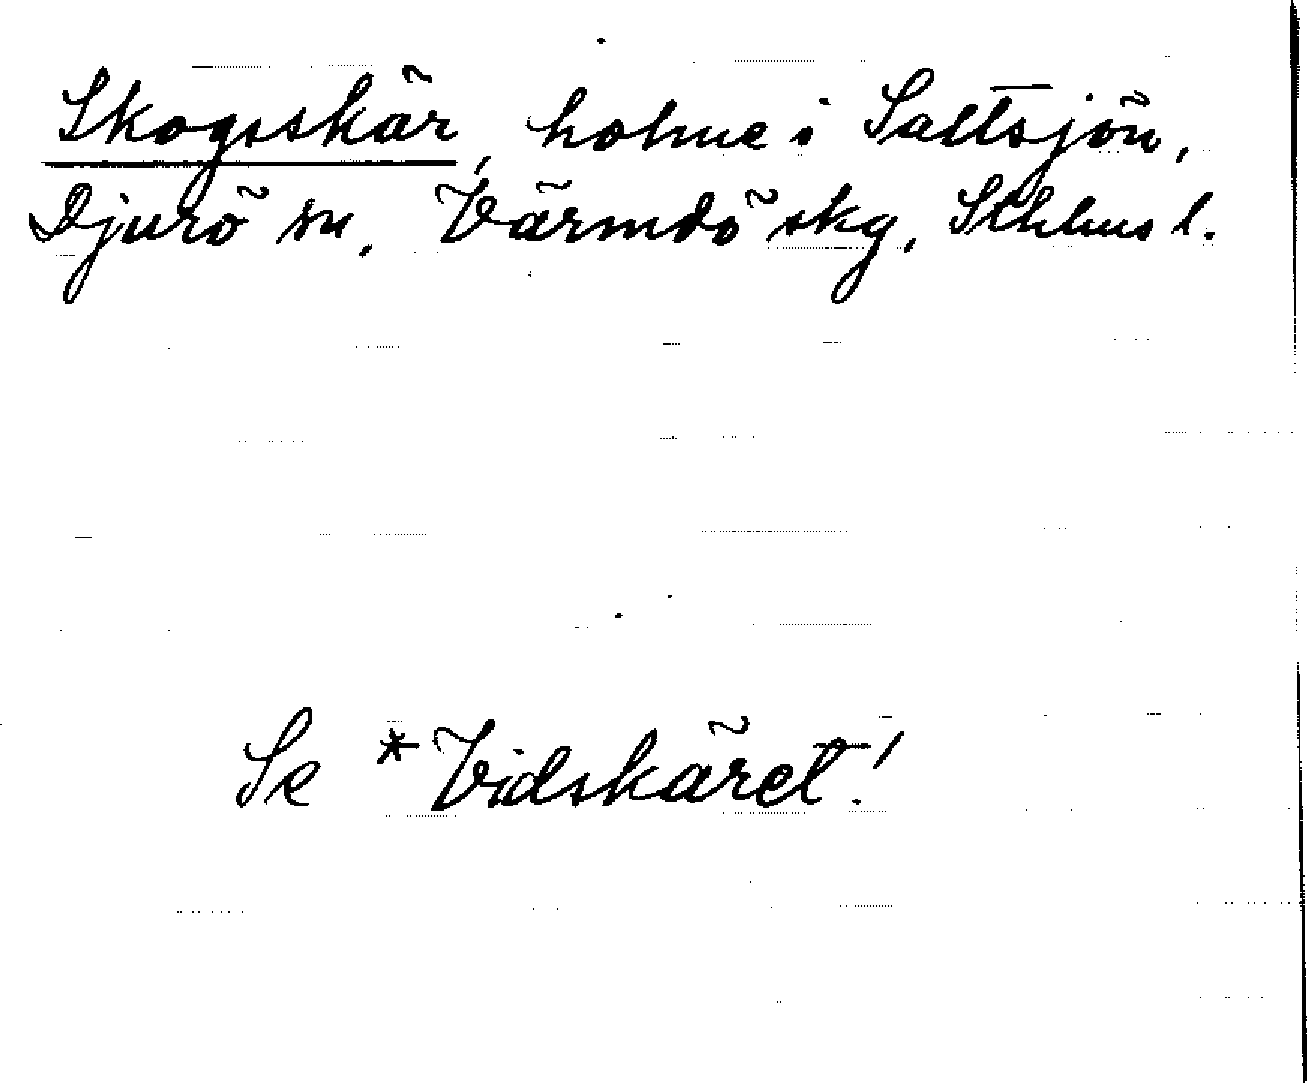 Skogsskär, holme i Saltsjön,
Djurö sn, Värmdö skg, Sthlms l.
Se *Vidskäret!